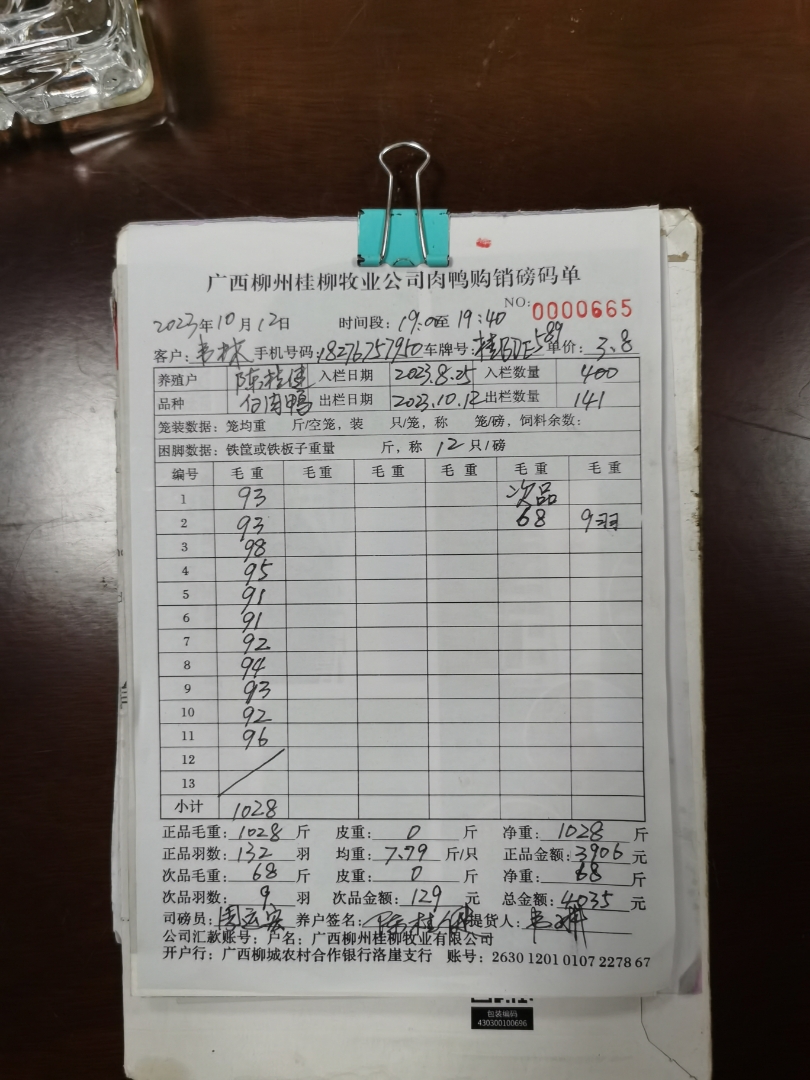 广西柳州桂柳牧业公司肉鸭购销磅码单
NO: 0000665
2023年10月12日 时间段: 19:0至19:40
客户: 韦林 手机号码: 18276757950 车牌号: 589 单价: 3.8
养殖户 陈桂健 入栏日期 2023.8.25 入栏数量 400
品种 白肉鸭 出栏日期 2023.10.12 出栏数量 141
笼装数据: 笼均重 斤/空笼, 装 只/笼, 称 笼/磅, 饲料余数:
困脚数据: 铁筐或铁板子重量 斤, 称 12 只/磅
编号 毛重 毛重 毛重 毛重 毛重 毛重
1 93 次品
2 93 68 9羽
3 98
4 95
5 91
6 91
7 92
8 94
9 93
10 92
11 96
12
13
小计 1028
正品毛重: 1028 斤 皮重: 0 斤 净重: 1028 斤
正品羽数: 132 羽 均重: 7.79 斤/只 正品金额: 3906 元
次品毛重: 68 斤 皮重: 0 斤 净重: 68 斤
次品羽数: 9 羽 次品金额: 129 元 总金额: 4035 元
司磅员: 养户签名: 陈桂健 提货人:
公司汇款账号: 户名: 广西柳州桂柳牧业有限公司
开户行: 广西柳城农村合作银行洛崖支行 账号: 2630 1201 0107 2278 67
包装编码
430300100696